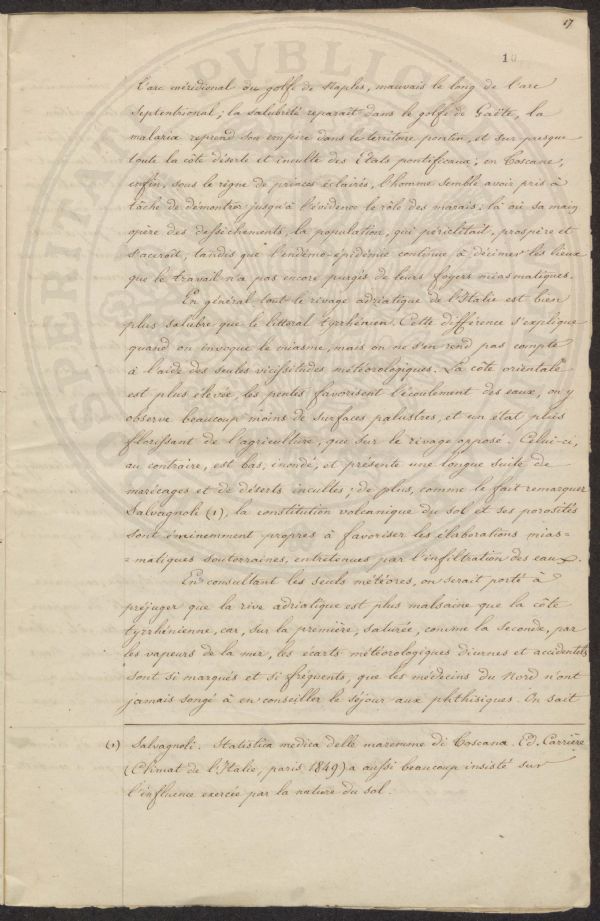 17
10
l'arc méridional du golfe de Naples, mauvais le long de l'arc
septentrional; la salubrité reparaît dans le golfe de Gaëte, la
malaria reprend son empire dans le territoire pontin, et sur presque
toute la côte déserte et inculte des États pontificaux; en Toscane,
enfin, sous le règne de princes éclairés, l'homme semble avoir pris à
tâche de démontrer jusqu'à l'évidence le rôle des marais: là où sa main
opère des dessèchements, la population, qui périclitait, prospère et
s'accroît, tandis que l'endémo-épidémie continue à décimer les lieux
que le travail n'a pas encore purgés de leurs foyers miasmatiques.
En général tout le rivage adriatique de l'Italie est bien
plus salubre que le littoral tyrrhénien. Cette différence s'explique
quand on invoque le miasme, mais on ne s'en rend pas compte
à l'aide des seules vicissitudes météorologiques. La côte orientale
est plus élevée, les pentes favorisent l'écoulement des eaux, on y
observe beaucoup moins de surfaces palustres, et un état plus
florissant de l'agriculture, que sur le rivage opposé. Celui-ci,
au contraire, est bas, inondé, et présente une longue suite de
marécages et de déserts incultes; de plus, comme le fait remarquer
Salvagnoli (1), la constitution volcanique du sol et ses porosités
sont éminemment propres à favoriser les élaborations mias=
=matiques souterraines, entretenues par l'infiltration des eaux.
En consultant les seuls météores, on serait porté à
préjuger que la rive adriatique est plus malsaine que la côte
tyrrhénienne, car, sur la première, saturée, comme la seconde, par
les vapeurs de la mer, les écarts météorologiques diurnes et accidentels
sont si marqués et si fréquents, que les médecins du Nord n'ont
jamais songé à en conseiller le séjour aux phthisiques. On sait
(1) Salvagnoli. Statistica medica delle maremme di Toscana. Ed. Carrière
(Climat de l'Italie, paris 1849) a aussi beaucoup insisté sur
l'influence exercée par la nature du sol.